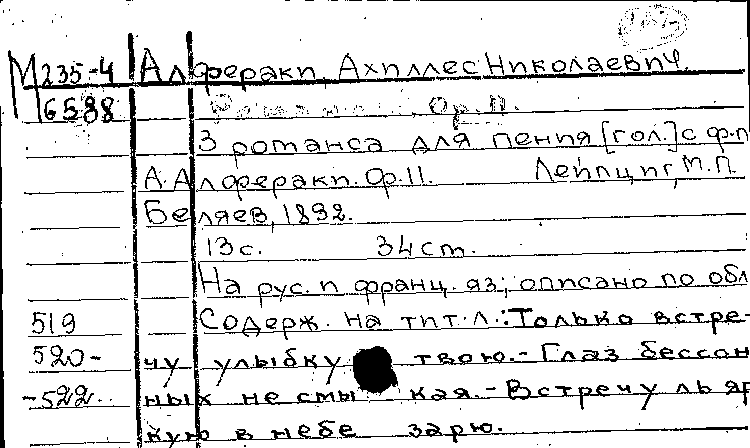 М 235-4 Алфераки, Ахиллес Николаевич.
6588 Романсы. Ор.11.
3 романса для пения [гол.] с ф.п
А. Алфераки. Ор.11. Лейпциг, М.П.
Беляев, 1892.
13 с. 34 см.
На рус. и франц. яз; описано по обл
519 Содерж. на тит.л.: Только встре-
520- чу улыбку твою.- Глаз бессон
-522 ных не смыкая.- Встречу ль яр
кую в небе зарю.